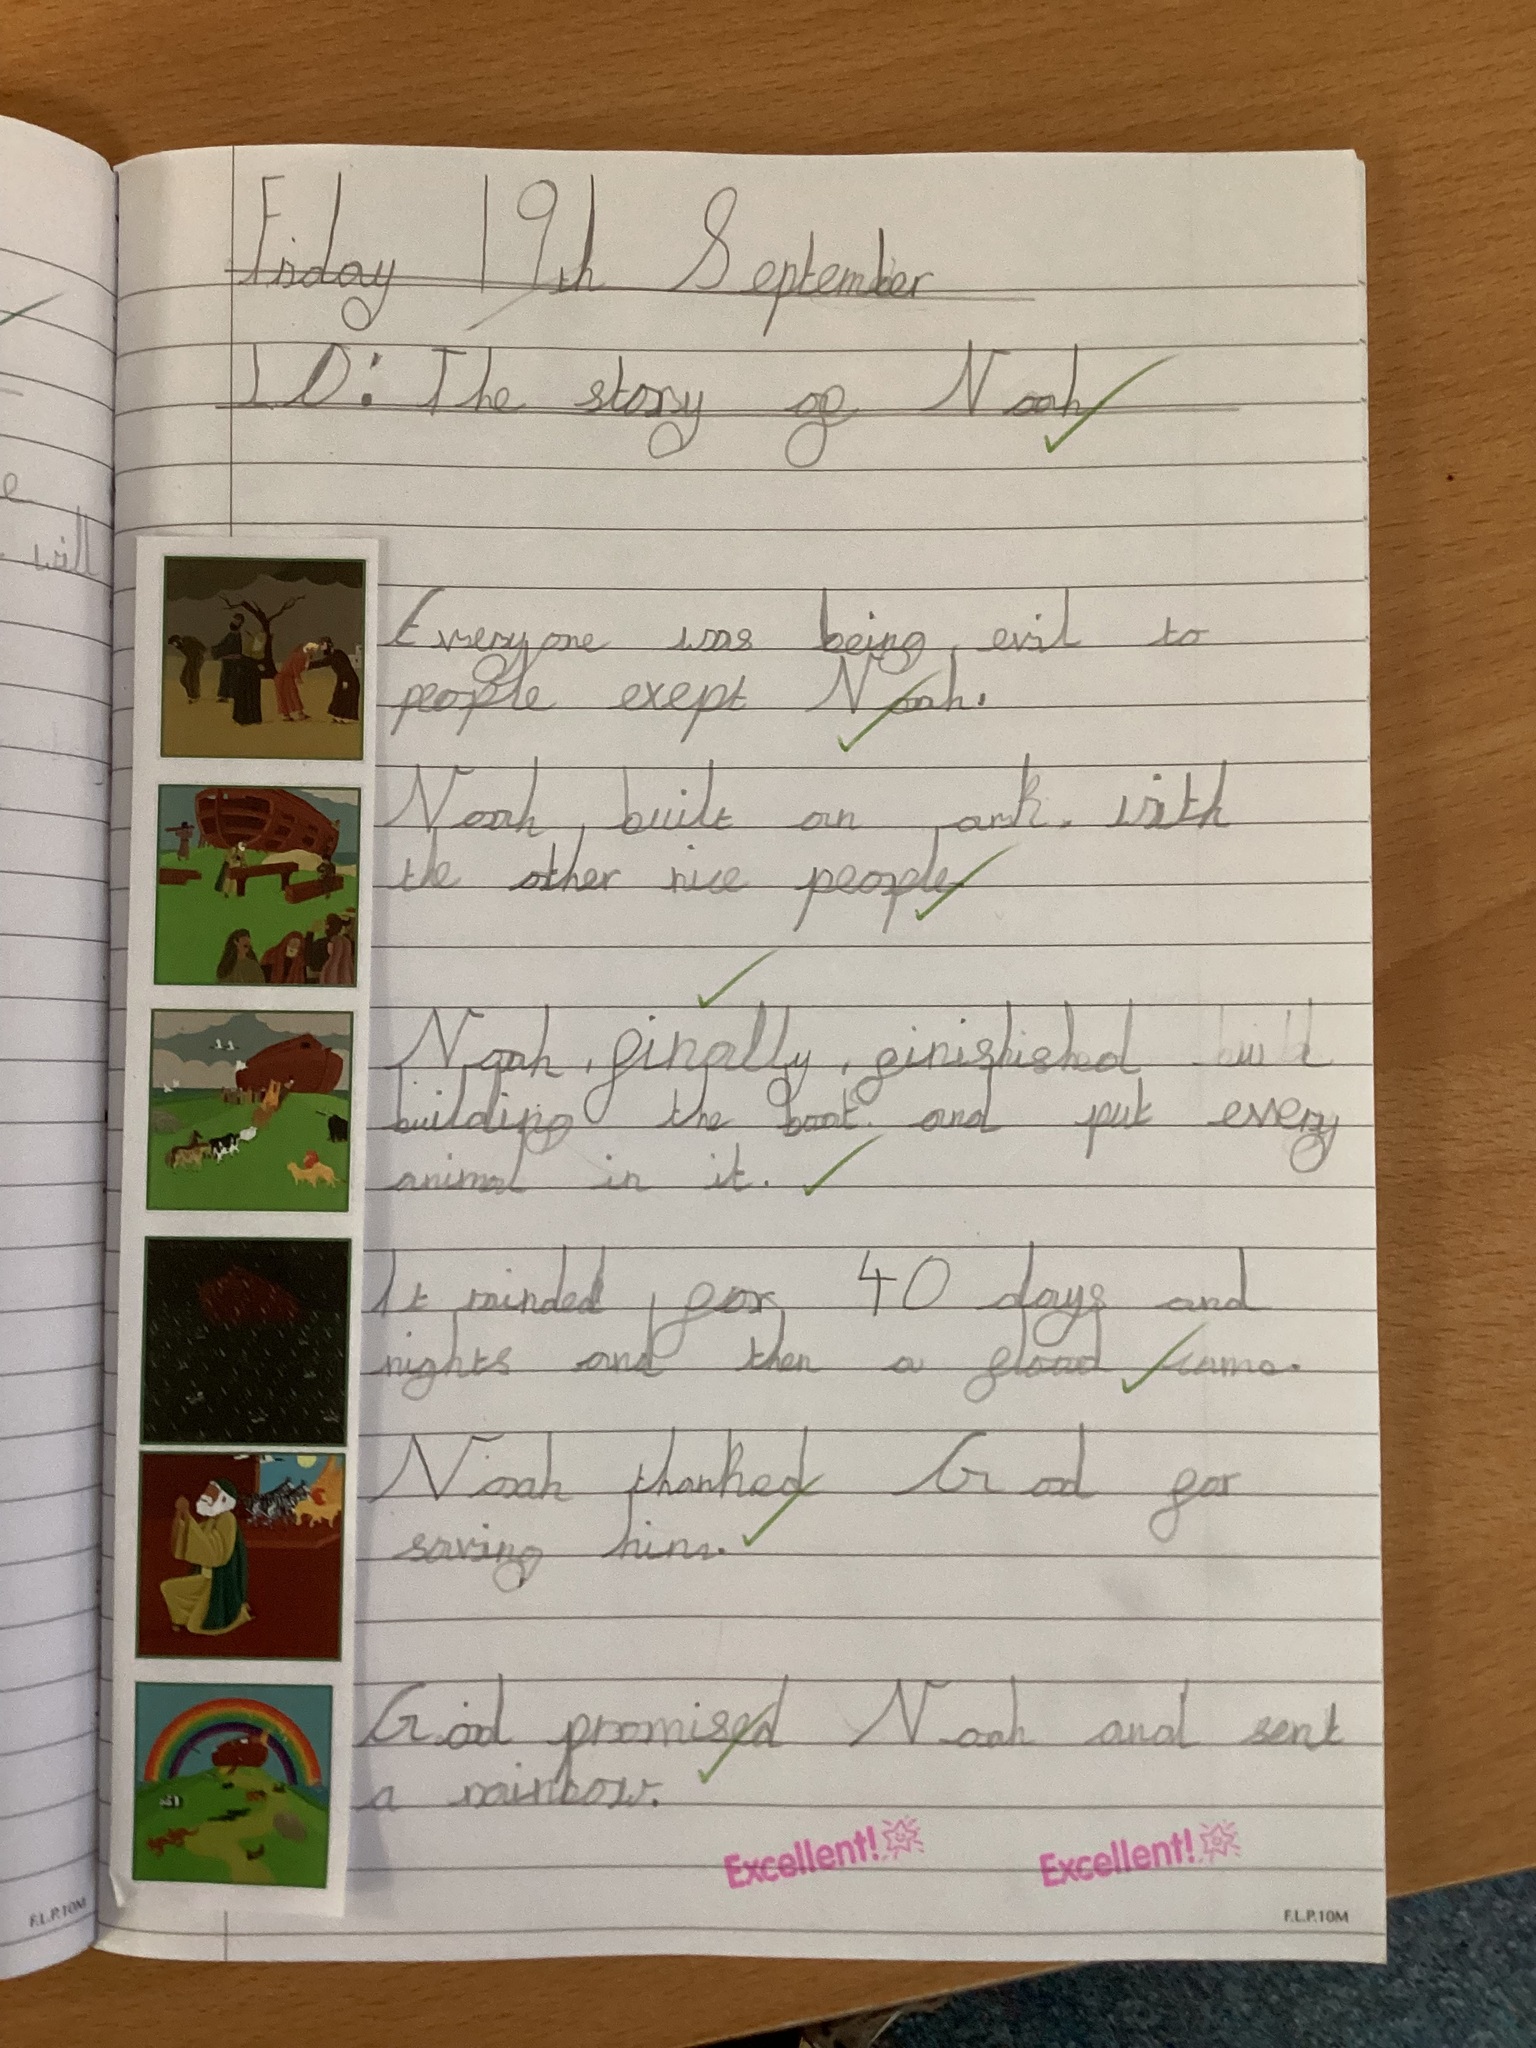 Friday 19th September
LO: The story of Noah
e
will
Everyone was being evil to
people exept Noah.
Noah built an ark. with
the other nice people
Noah finally finishished built
building the boat. and put every
animal in it.
It rainded for 40 days and
nights and then a flood came.
Noah thanked God for
saving him.
God promised Noah and sent
a rainbow.
Excellent! Excellent!
F.L.P.10M
F.L.P.10M